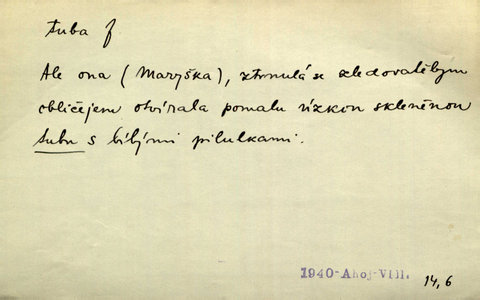 tuba f
Ale ona (Maryška), ztrnulá se zledovatělým
obličejem otvírala pomalu úzkou skleněnou
tubu s bílými pilulkami.
1940-Ahoj-VIII.
14,6